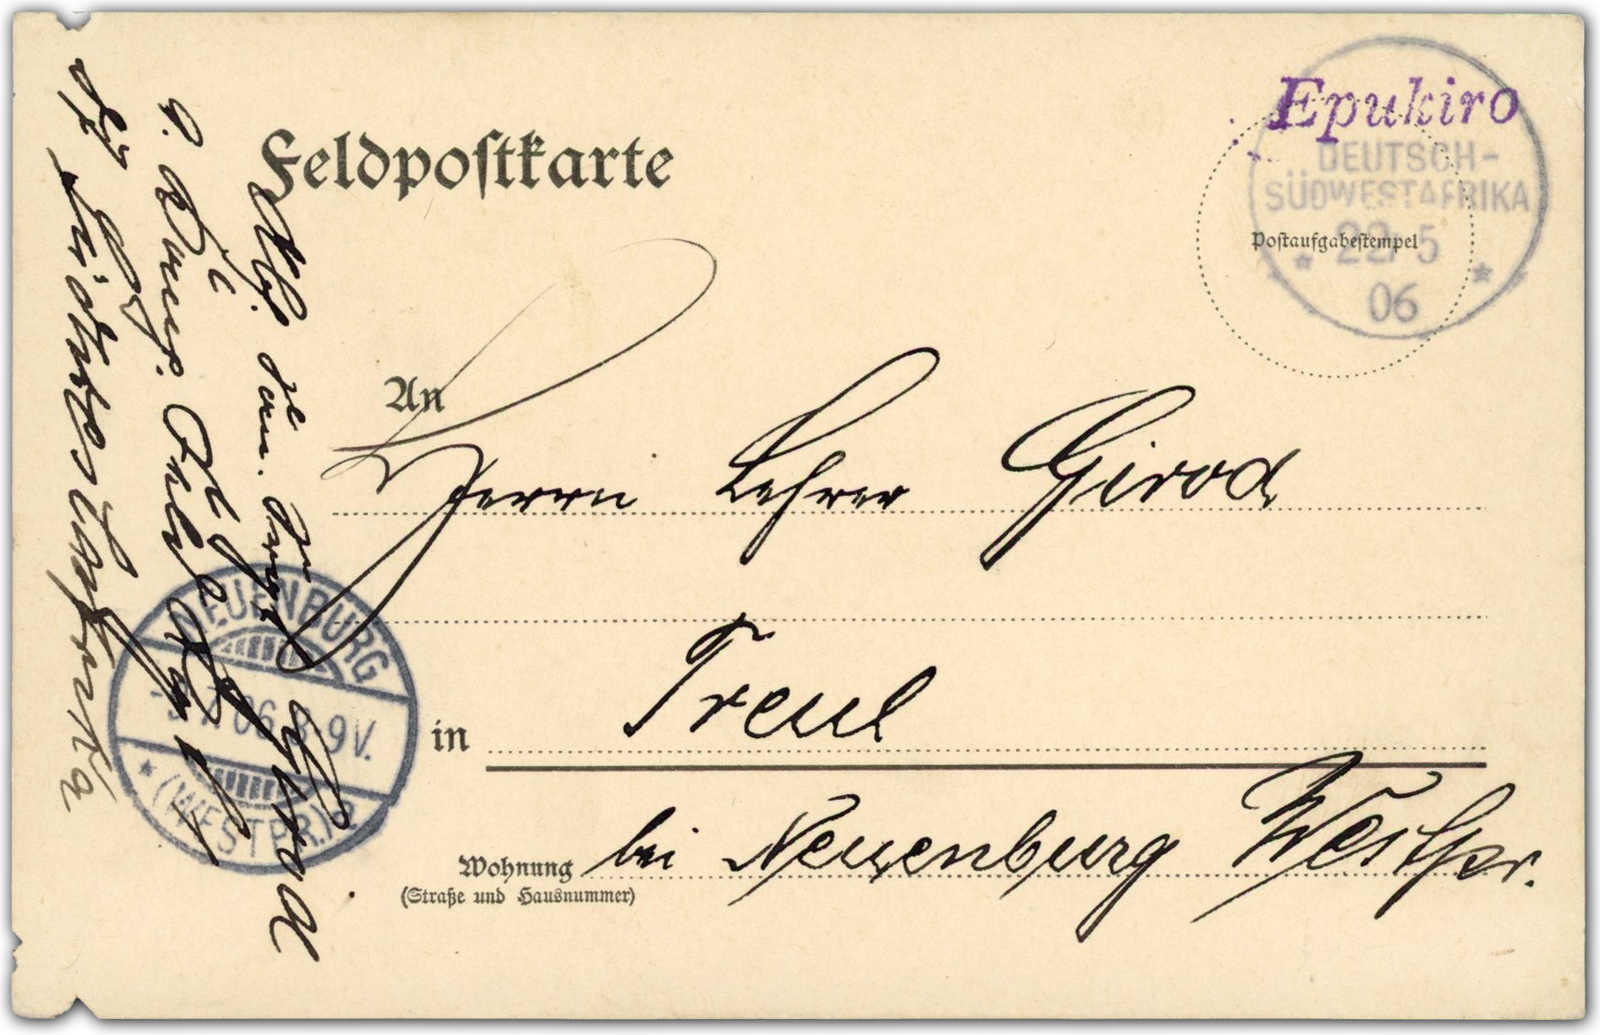 Feldpostkarte
Epukiro
DEUTSCH-
SÜDWESTAFRIKA
22/5
06
Postaufgabestempel
An
Herrn Lehrer Girod
in Treul
Wohnung bei Neuenburg Westpr.
(Straße und Hausnummer)
NEUENBURG
7 06 8-9V.
* (WESTPR.)
Abs. San. Girod
Deutsch Südwestafrika